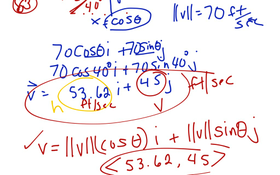 63
40°
x = cosθ
||v|| = 70 ft/sec
70cosθi + 70sinθj
70cos40°i + 70sin40°j
v = 53.62i + 45j ft/sec
h ft/sec v
✓ v = ||v||(cosθ)i + ||v||sinθj
<53.62, 45>